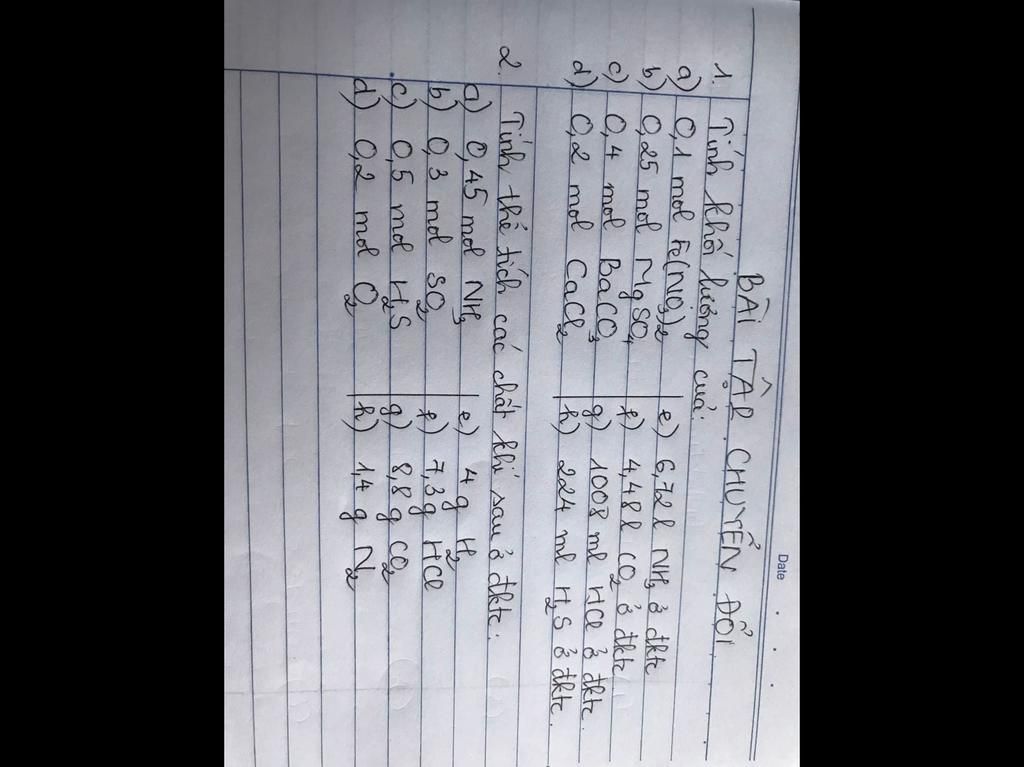 Date
BÀI TẬP CHUYỂN ĐỔI
1. Tính khối lượng của:
a) 0,1 mol Fe(NO3)2
e) 6,72 l NH3 ở đktc
b) 0,25 mol MgSO4
f) 4,48 l CO2 ở đktc
c) 0,4 mol BaCO3
g) 1008 ml HCl ở đktc.
d) 0,2 mol CaCl2
h) 224 ml H2S ở đktc.
2. Tính thể tích các chất khí sau ở đktc:
a) 0,45 mol NH3
e) 4 g H2
b) 0,3 mol SO2
f) 7,3 g HCl
c) 0,5 mol H2S
g) 8,8 g CO2
d) 0,2 mol O2
h) 1,4 g N2